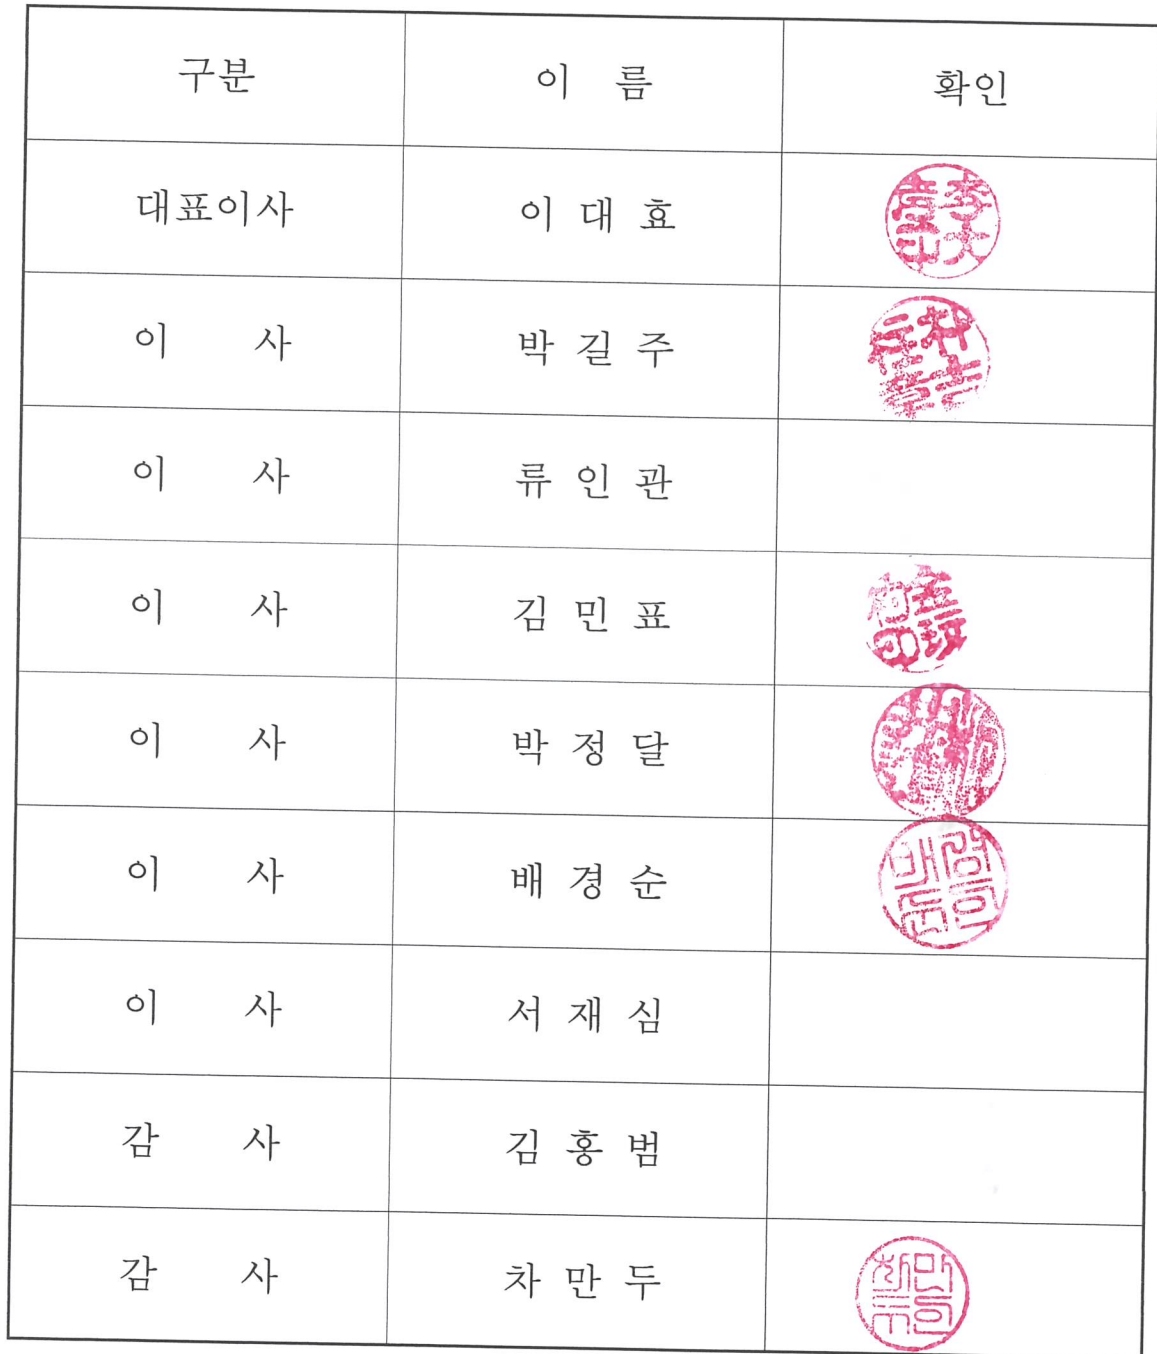 구분 이 름 확인
대표이사 이 대 효
이 사 박 길 주
이 사 류 인 관
이 사 김 민 표
이 사 박 정 달
이 사 배 경 순
이 사 서 재 심
감 사 김 홍 범
감 사 차 만 두